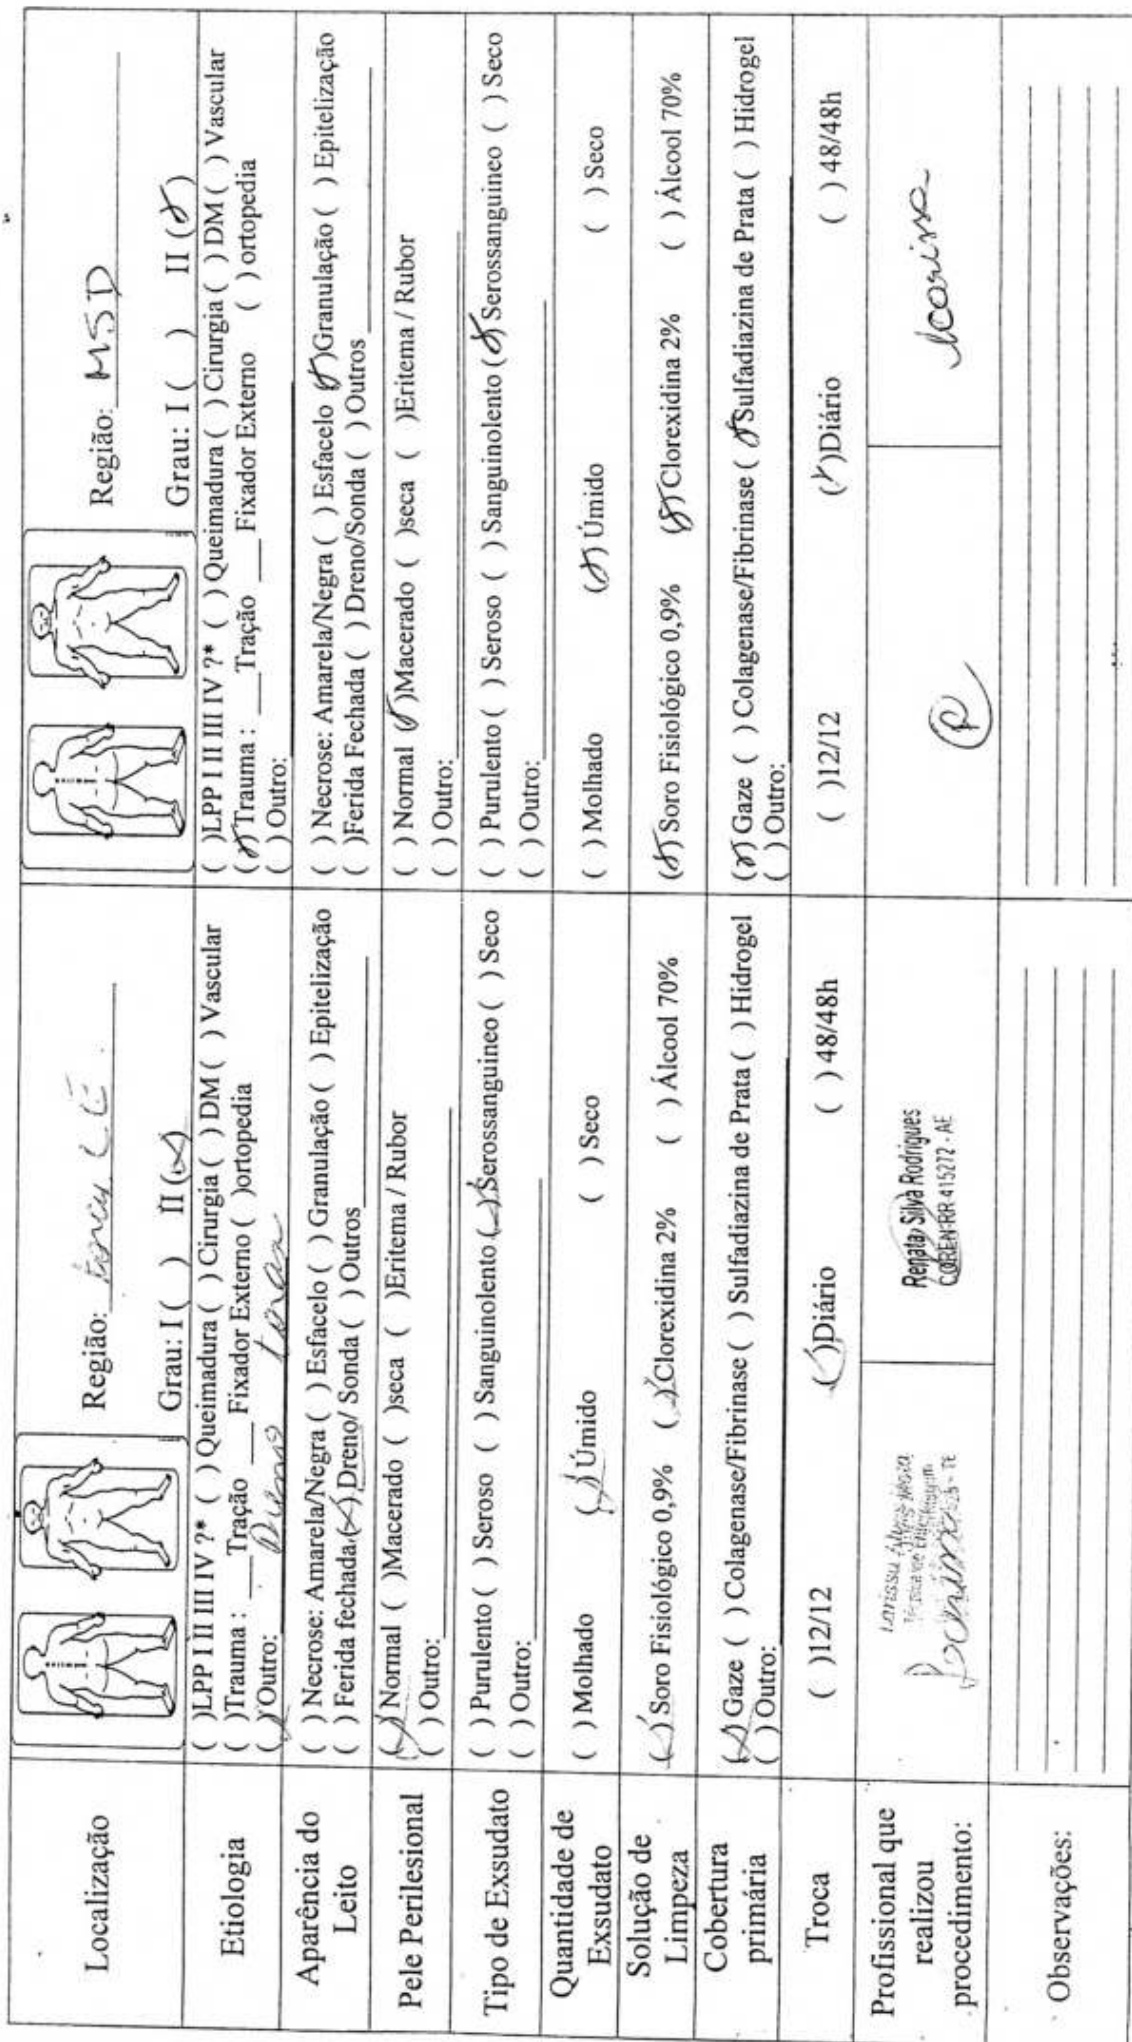 Localização
Região: Torax LE.
Grau: I ( ) II (x)
Região: MSD
Grau: I ( ) II (x)
Etiologia
( )LPP I II III IV ?* ( ) Queimadura ( ) Cirurgia ( ) DM ( ) Vascular
( )Trauma : ___Tração ___Fixador Externo ( )ortopedia
(x) Outro: Dreno torax
( )LPP I II III IV ?* ( ) Queimadura ( ) Cirurgia ( ) DM ( ) Vascular
(x)Trauma : ___Tração ___Fixador Externo ( ) ortopedia
( ) Outro:
Aparência do
Leito
( ) Necrose: Amarela/Negra ( ) Esfacelo ( ) Granulação ( ) Epitelização
( ) Ferida fechada (x) Dreno/ Sonda ( ) Outros
( ) Necrose: Amarela/Negra ( ) Esfacelo (x)Granulação ( ) Epitelização
( )Ferida Fechada ( ) Dreno/Sonda ( ) Outros
Pele Perilesional
(x) Normal ( )Macerado ( )seca ( )Eritema / Rubor
( ) Outro:
( ) Normal (x)Macerado ( )seca ( )Eritema / Rubor
( ) Outro:
Tipo de Exsudato
( ) Purulento ( ) Seroso ( ) Sanguinolento (x)Serossanguineo ( ) Seco
( ) Outro:
( ) Purulento ( ) Seroso ( ) Sanguinolento (x) Serossanguineo ( ) Seco
( ) Outro:
Quantidade de
Exsudato
( ) Molhado (x) Úmido ( ) Seco
( ) Molhado (x) Úmido ( ) Seco
Solução de
Limpeza
(x) Soro Fisiológico 0,9% (x)Clorexidina 2% ( ) Álcool 70%
(x) Soro Fisiológico 0,9% (x)Clorexidina 2% ( ) Álcool 70%
Cobertura
primária
(x) Gaze ( ) Colagenase/Fibrinase ( ) Sulfadiazina de Prata ( ) Hidrogel
( ) Outro:
(x) Gaze ( ) Colagenase/Fibrinase (x)Sulfadiazina de Prata ( ) Hidrogel
( ) Outro:
Troca
( )12/12 (x)Diário ( ) 48/48h
( )12/12 (x)Diário ( ) 48/48h
Profissional que
realizou
procedimento:
Larissa
Larissa
Renata Silva Rodrigues
COREN-RR 415272 - AE
R
Larissa
Observações: